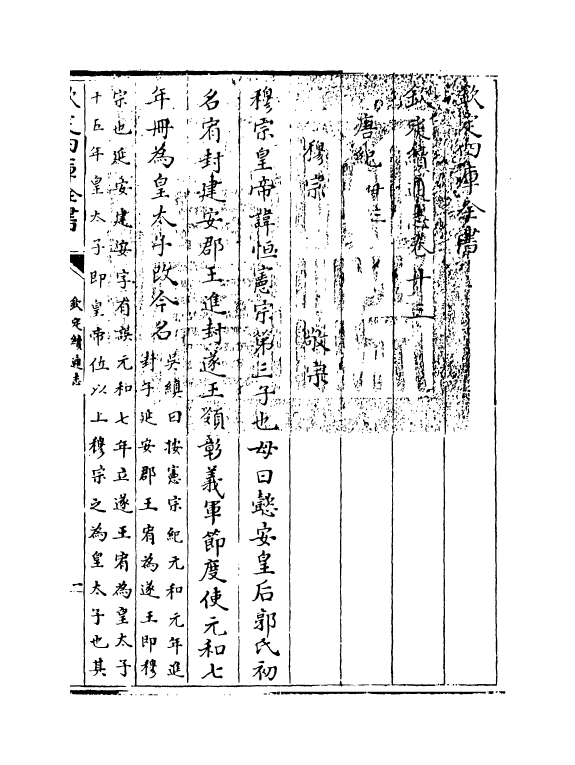 欽定四庫全書
欽定續通志卷十三
唐紀十三
穆宗 敬宗
穆宗皇帝諱恒憲宗第三子也母曰懿安皇后郭氏初
名宥封建安郡王進封遂王領彰義軍節度使元和七
年冊為皇太子改今名
吳縝曰按憲宗紀元和元年進
封子延安郡王宥為遂王即穆
宗也延安建安字有誤元和七年立遂王宥為皇太子
十五年皇太子即皇帝位以上穆宗之為皇太子也其
欽定四庫全書
欽定續通志
一